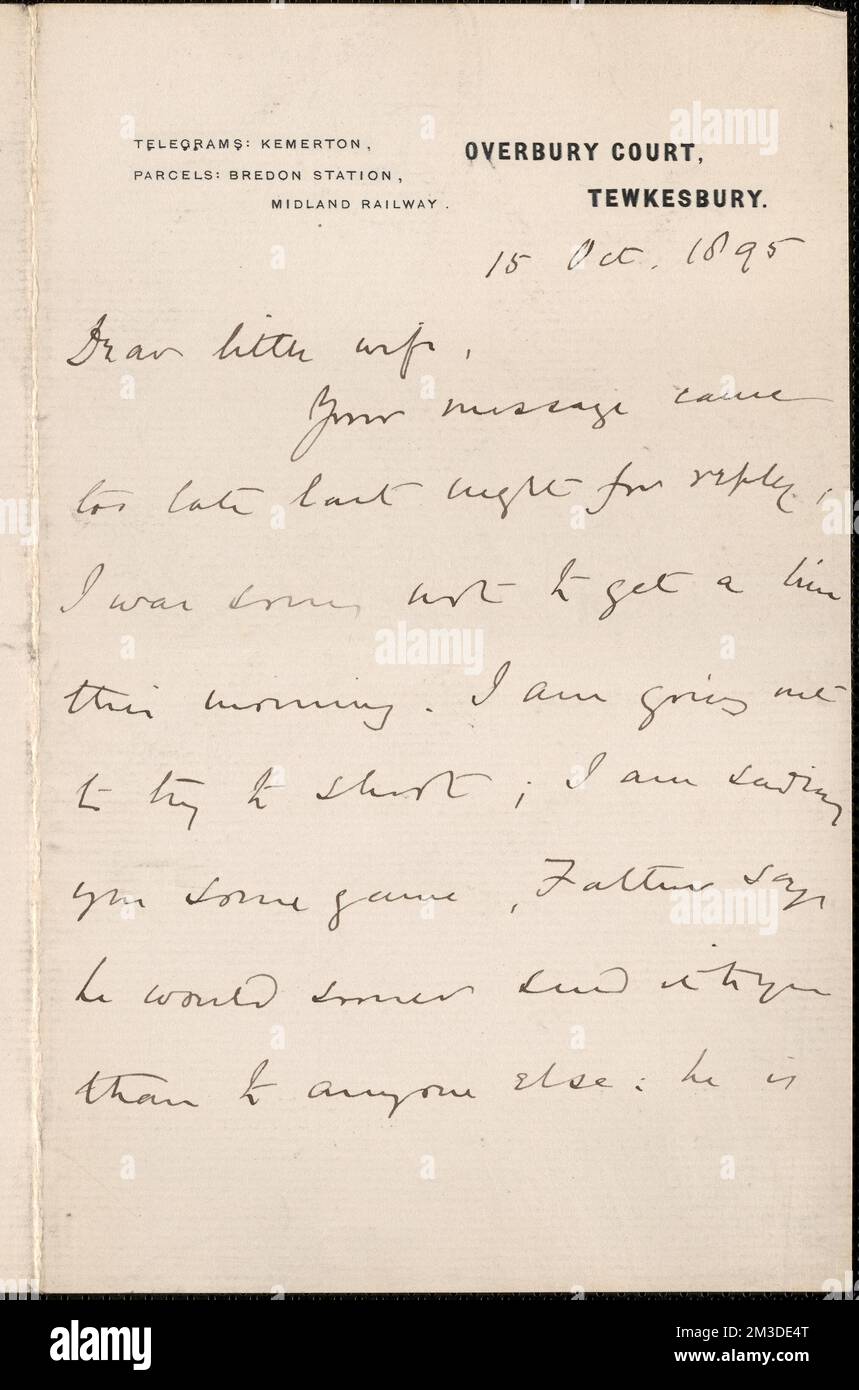 TELEGRAMS: KEMERTON,
PARCELS: BREDON STATION,
MIDLAND RAILWAY.
OVERBURY COURT,
TEWKESBURY.
15 Oct. 1895
Dear little wife,
Your message came
too late last night for reply,
I was sorry not to get a line
this morning. I am going out
to try to shoot; I am sending
you some game, Father says
he would sooner send it to you
than to anyone else: he is
alamy
Image ID: 2M3DE4T
www.alamy.com